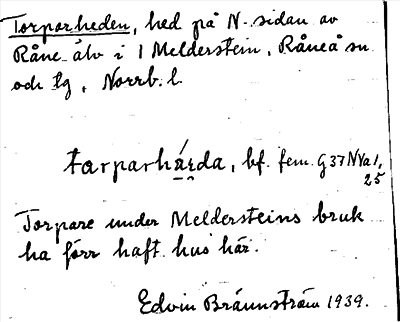 Torparheden, hed på N. sidan av
Råne älv i 1 Melderstein, Råneå sn
och tg, Norrb. l.
tarparhä́ɽda, bf. fem. G37NVa1,
25
Torpare under Meldersteins bruk
ha förr haft hus här.
Edvin Brännström 1939.